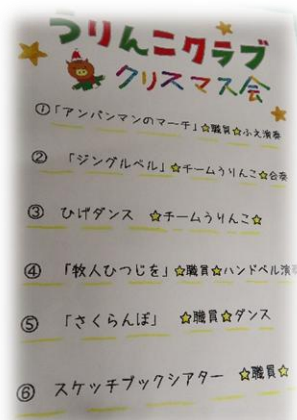 うりんこクラブ
クリスマス会
①「アンパンマンのマーチ」☆職員☆ふえ演奏
② 「ジングルベル」☆チームうりんこ☆合奏
③ ひげダンス ☆チームうりんこ☆
④ 「牧人ひつじを」☆職員☆ハンドベル演奏
⑤ 「さくらんぼ」 ☆職員☆ダンス
⑥ スケッチブックシアター ☆職員☆